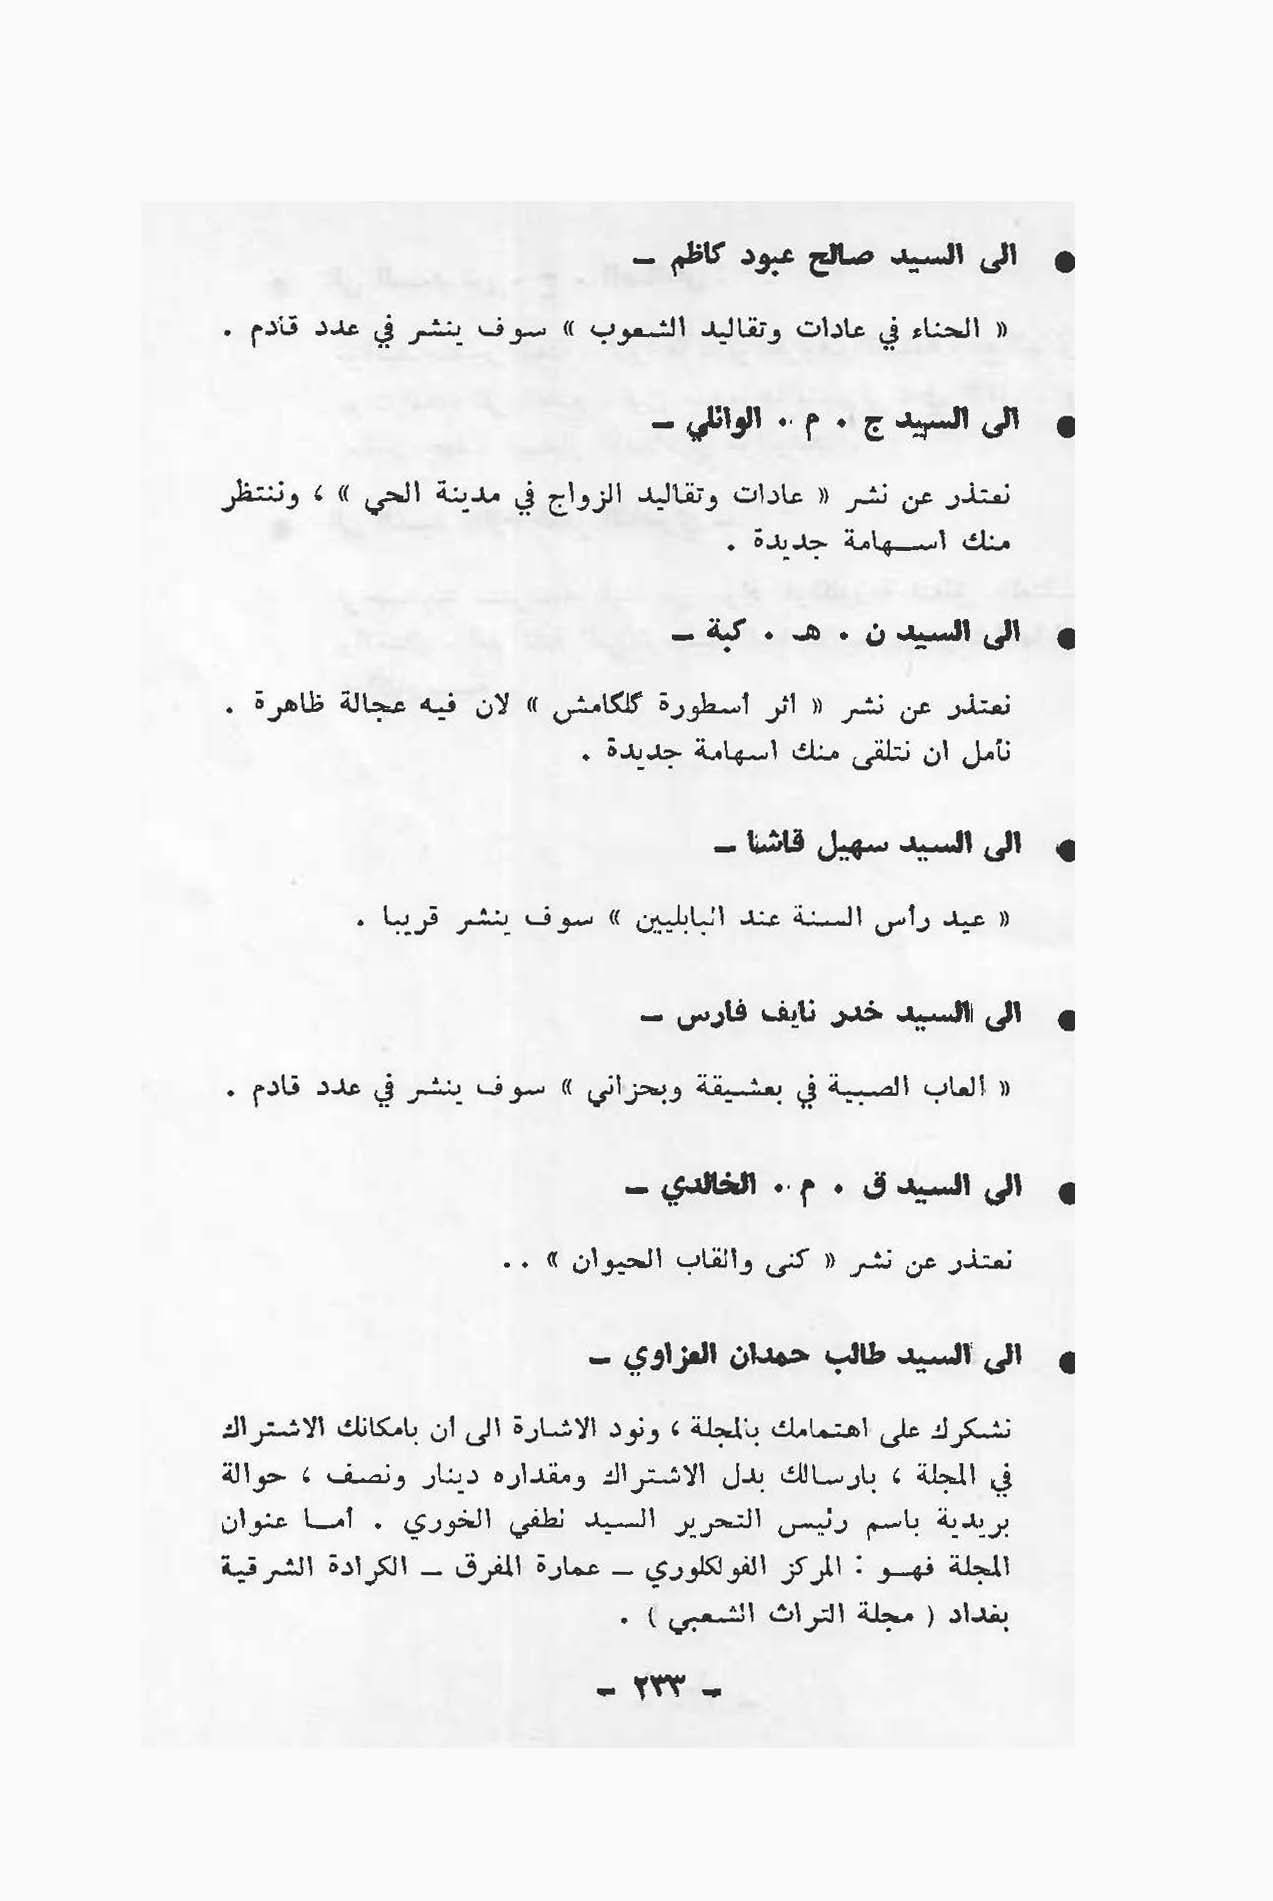 ● الى السيد صالح عبود كاظم –
« الحناء في عادات وتقاليد الشعوب » سوف ينشر في عدد قادم .
● الى السيد ج . م . الوائلي –
نعتذر عن نشر « عادات وتقاليد الزواج في مدينة الحي » ، وننتظر
منك اسهامة جديدة .
● الى السيد ن . هـ . كبة –
نعتذر عن نشر « اثر أسطورة گلگامش » لان فيه عجالة ظاهرة .
نأمل ان نتلقى منك اسهامة جديدة .
● الى السيد سهيل قاشا –
« عيد رأس السنة عند البابليين » سوف ينشر قريبا .
● الى السيد خدر نايف فارس –
« العاب الصبية في بعشيقة وبحزاني » سوف ينشر في عدد قادم .
● الى السيد ق . م . الخالدي –
نعتذر عن نشر « كنى والقاب الحيوان » . .
● الى السيد طالب حمدان العزاوي –
نشكرك على اهتمامك بالمجلة ، ونود الاشارة الى أن بامكانك الاشتراك
في المجلة ، بارسالك بدل الاشتراك ومقداره دينار ونصف ، حوالة
بريدية باسم رئيس التحرير السيد لطفي الخوري . أما عنوان
المجلة فهو : المركز الفولكلوري – عمارة المفرق – الكرادة الشرقية
بغداد ( مجلة التراث الشعبي ) .
– ٢٣٣ –